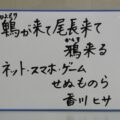 鵯が来て尾長来て
鴉来る
ネット・スマホ・ゲーム
せぬものら
香川ヒサ